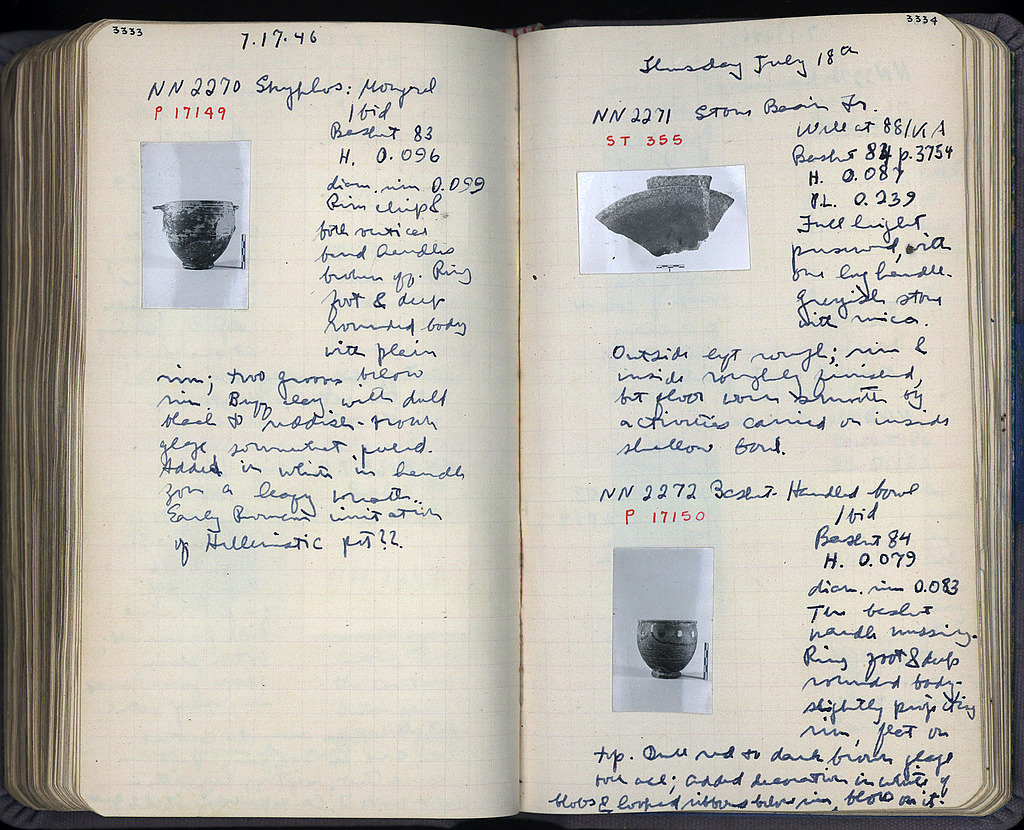 3333
7.17.46
NN 2270 Skyphos: Mongrel
P 17149
Ibid
Basket 83
H. 0.096
diam. rim 0.099
Rim chip &
both vertical
band handles
broken off. Ring
foot & deep
rounded body
with plain
rim; two grooves below
rim. Buff clay with dull
black to reddish-brown
glaze, somewhat peeled.
Added in white in handle
zone a leafy wreath..
Early Roman imitation
of Hellenistic pot??
3334
Thursday July 18th
NN 2271 Stone Basin Fr.
ST 355
Well at 88/ΚΑ
Basket 84 p.3754
H. 0.087
P.L. 0.239
Full height
preserved, with
one lug handle.
Greyish stone
with mica.
Outside left rough; rim &
inside roughly finished,
but floor worn smooth by
activities carried on inside
shallow bowl.
NN 2272 Basket-Handled bowl
P 17150
Ibid
Basket 84
H. 0.079
diam. rim 0.083
The basket
handle missing.
Ring foot & deep
rounded body-
slightly projecting
rim, flat on
top. Dull red to dark brown glaze
over all; added decoration in white of
blobs & looped ribbons below rim, on it.